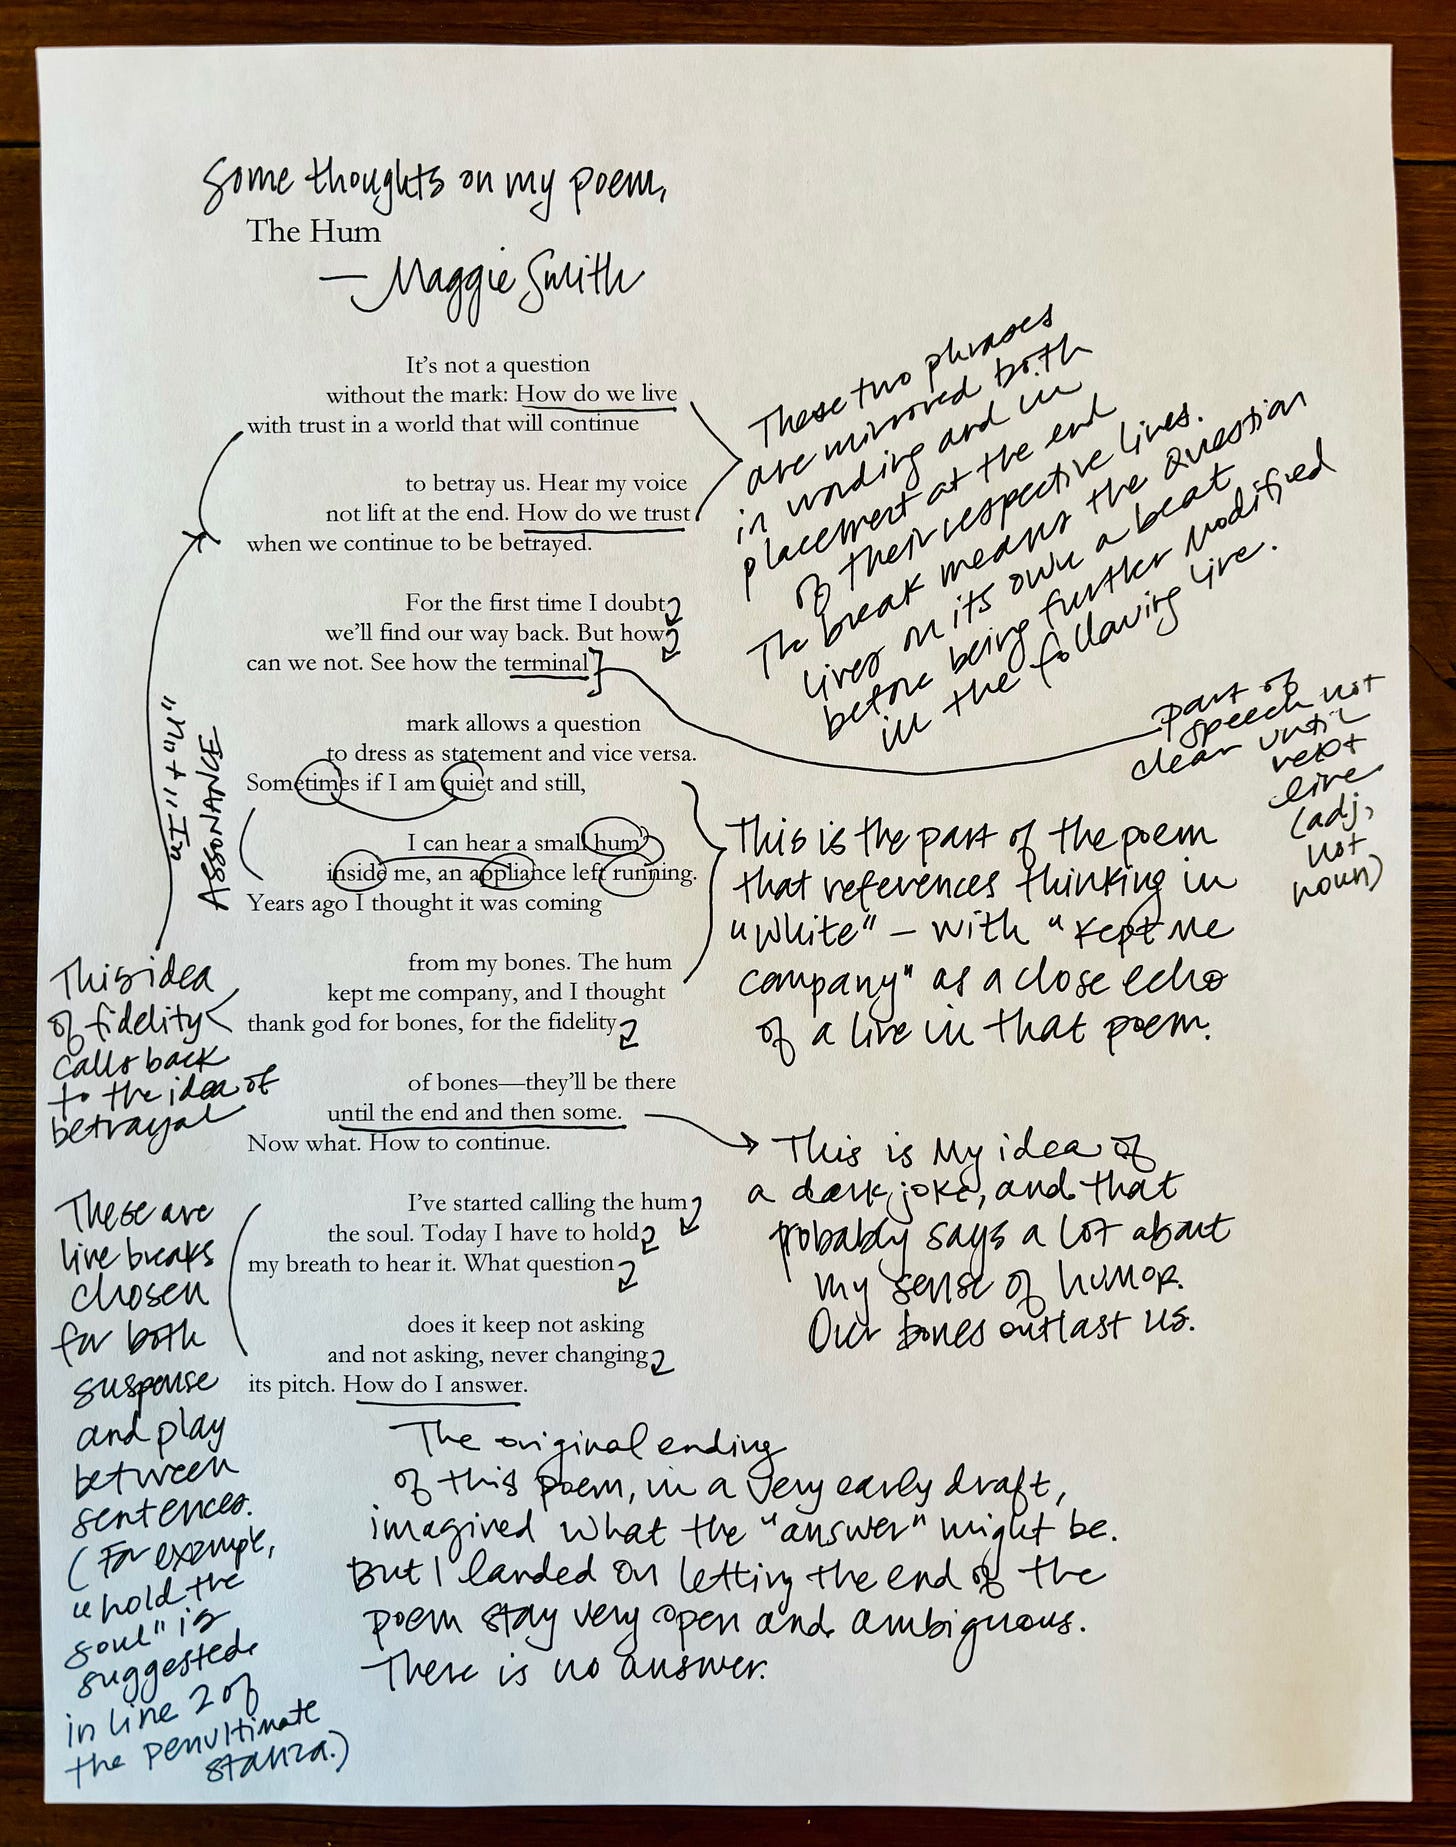 Some thoughts on my poem,
The Hum
— Maggie Smith
It's not a question
without the mark: How do we live
with trust in a world that will continue
to betray us. Hear my voice
not lift at the end. How do we trust
when we continue to be betrayed.
For the first time I doubt
we'll find our way back. But how
can we not. See how the terminal
mark allows a question
to dress as statement and vice versa.
Sometimes if I am quiet and still,
I can hear a small hum
inside me, an appliance left running.
Years ago I thought it was coming
from my bones. The hum
kept me company, and I thought
thank god for bones, for the fidelity
of bones—they'll be there
until the end and then some.
Now what. How to continue.
I've started calling the hum
the soul. Today I have to hold
my breath to hear it. What question
does it keep not asking
and not asking, never changing
its pitch. How do I answer.
These two phrases
are mirrored both
in wording and in
placement at the end
of their respective lines.
The break means the question
lives on its own a beat
before being further modified
in the following line.
part of
speech not
clear until
next
line
(adj,
not
noun)
"I" + "u"
ASSONANCE
This is the part of the poem
that references thinking in
"White" – with "kept me
company" as a close echo
of a line in that poem.
This idea
of fidelity
calls back
to the idea of
betrayal
This is my idea of
a dark joke, and that
probably says a lot about
my sense of humor.
Our bones outlast us.
These are
line breaks
chosen
for both
suspense
and play
between
sentences.
(For example,
"hold the
soul" is
suggested
in line 2 of
the penultimate
stanza.)
The original ending
of this poem, in a very early draft,
imagined what the "answer" might be.
But I landed on letting the end of the
poem stay very open and ambiguous.
There is no answer.